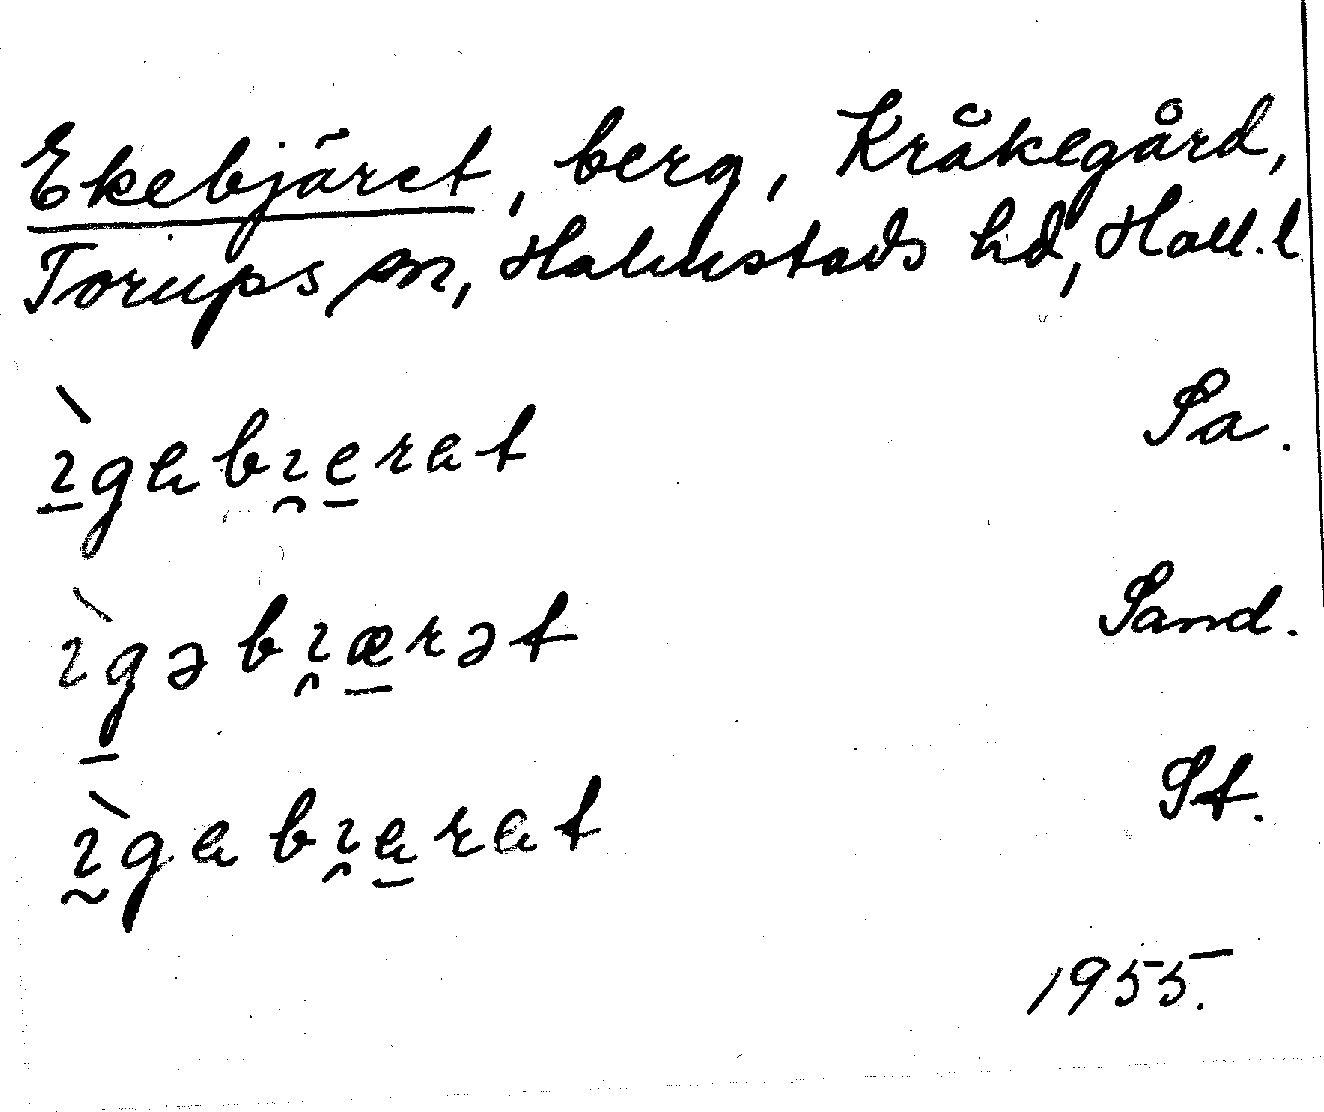 Ekebjäret, berg, Kråkegård,
Torups sn, Halmstads hd, Hall. l
ı̱̀gɐbı̯e̱rɐt Sa.
ı̀g̱əbı̯æ̱rət Sand.
ı̰̀gɐbı̯ɐ̱rɐt St.
1955.